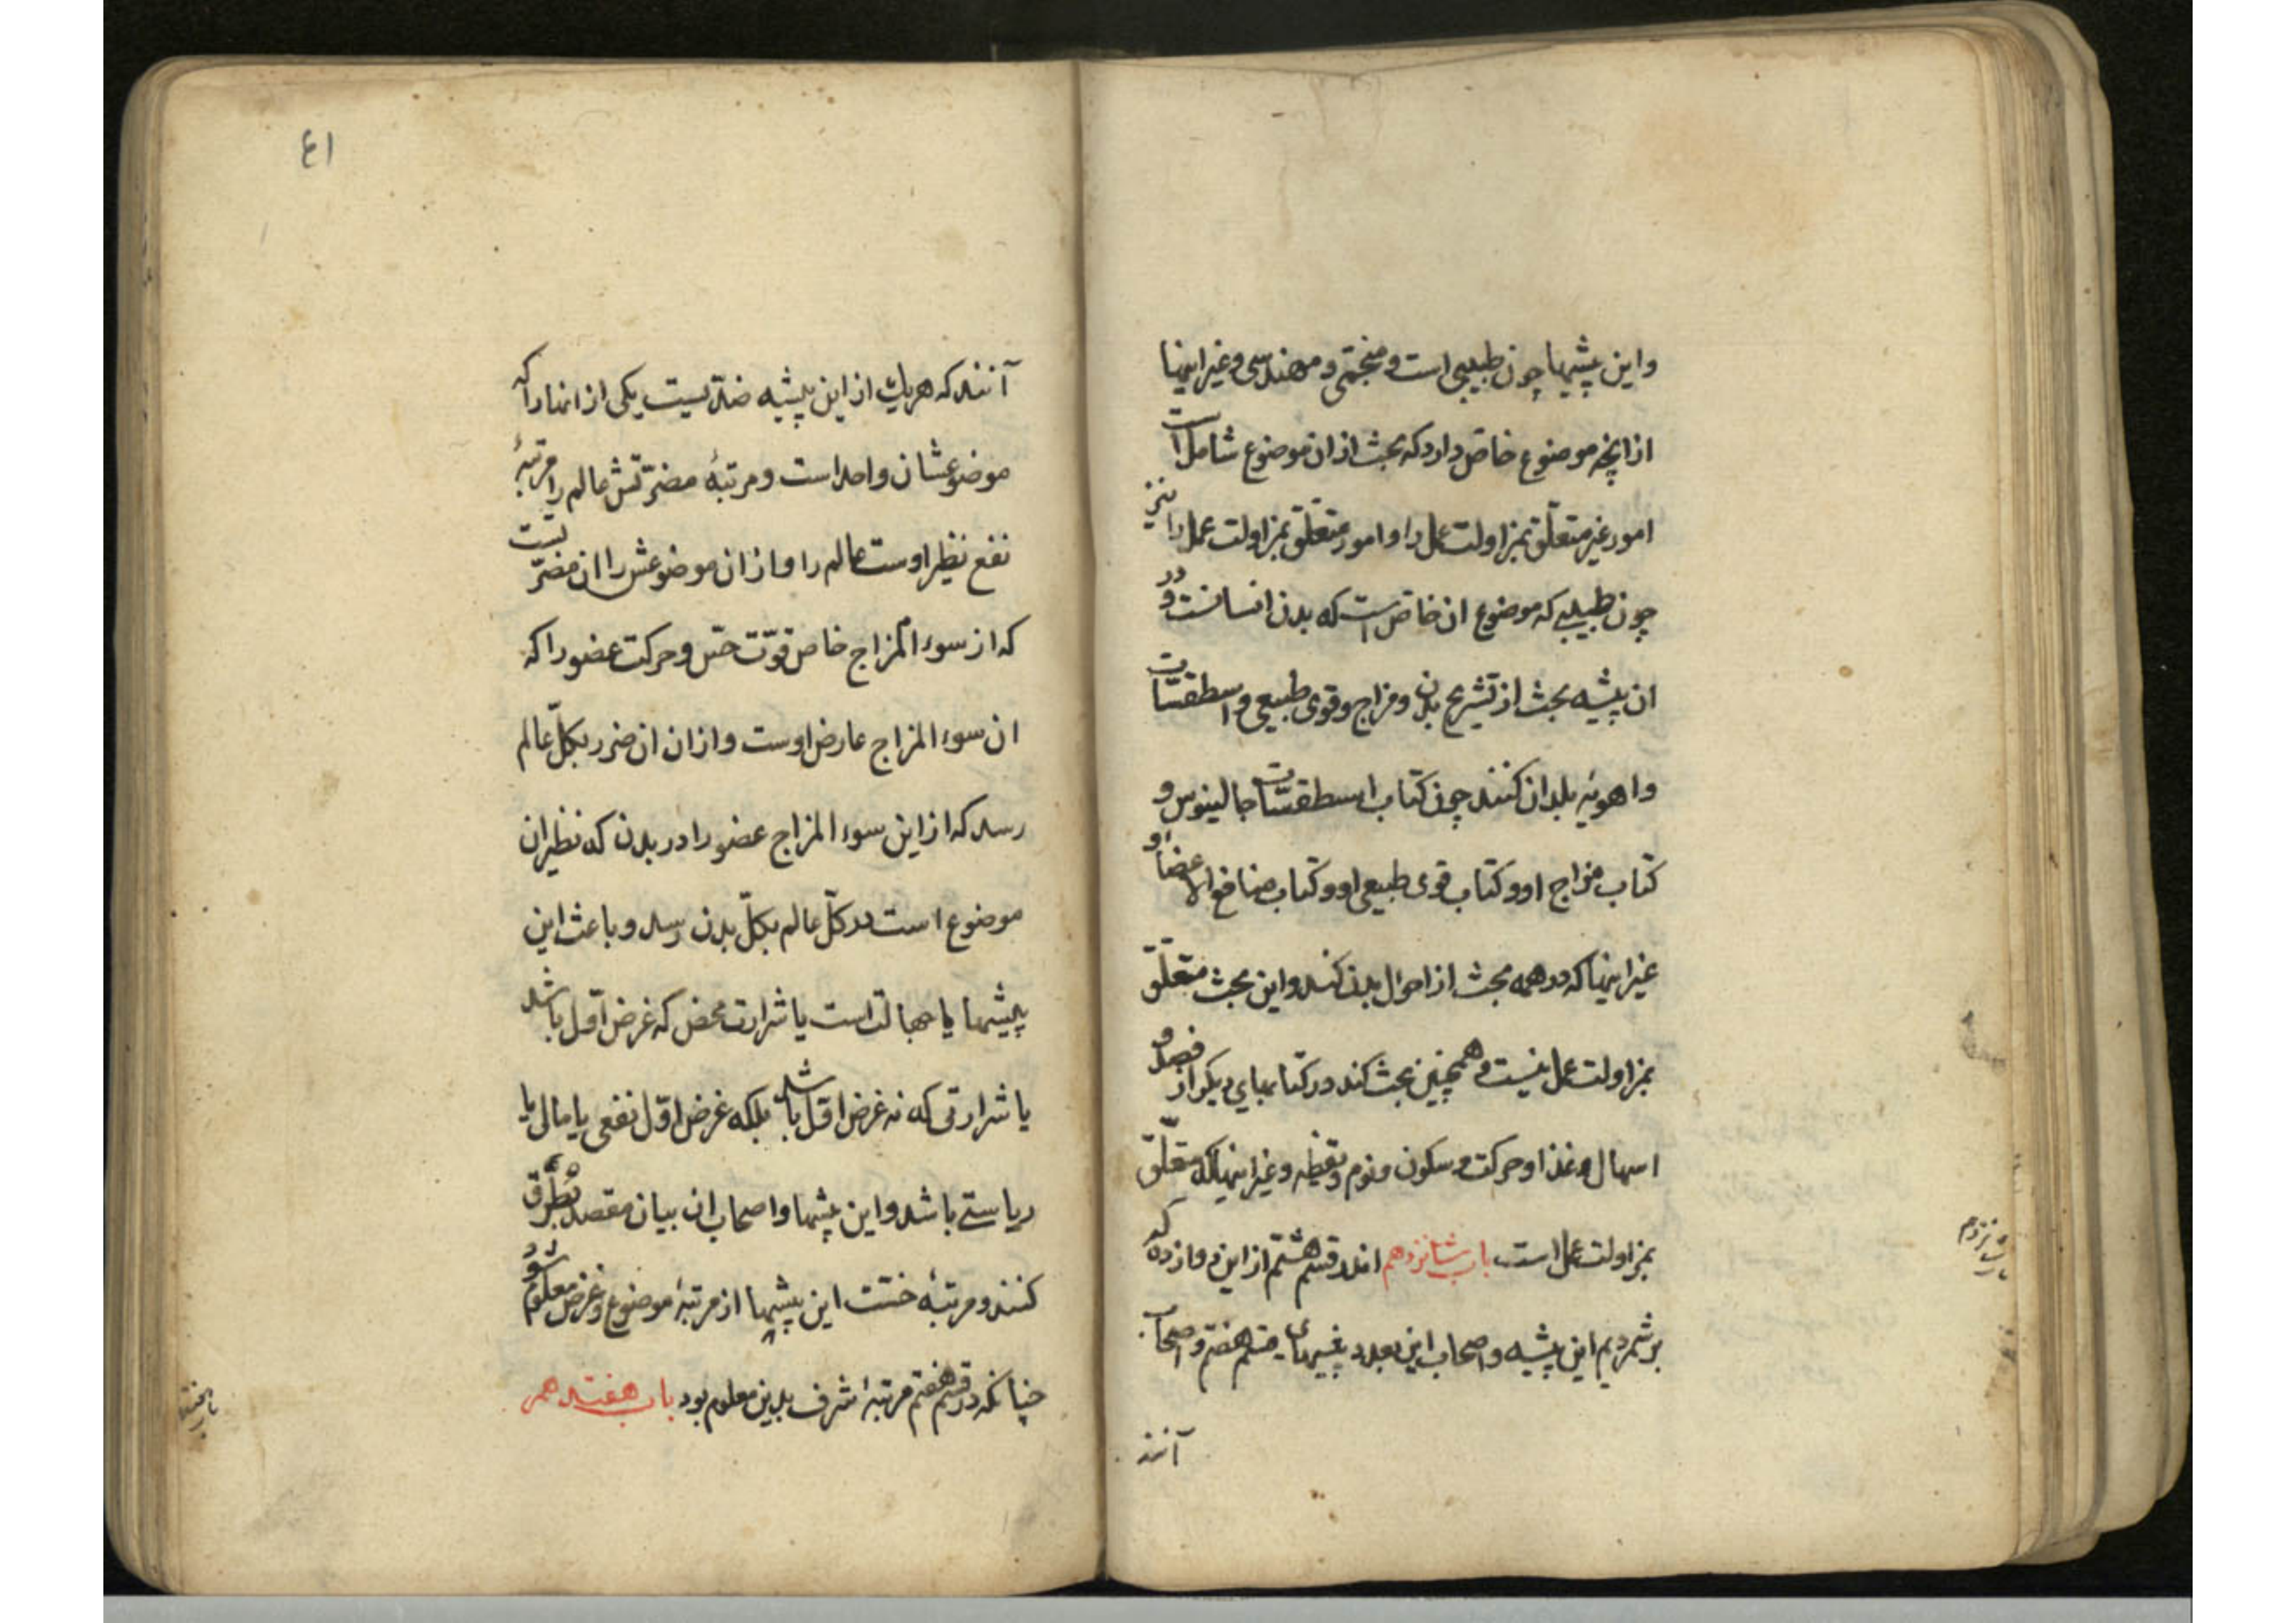 واین پیشها چون طبیبی است و منجمی و مهندسی وغیر اینها
از آنچه موضوع خاص دارد که بحث از ان موضوع شامل است
امور غیر متعلق بمزاولت عمل را و امور متعلق بمزاولت عمل را نیز
چون طبیبی که موضوع ان خاص است که بدن انسانست و در
ان پیشه بحث از تشریح بدن و مزاج وقوی طبیعی و اسطقسات
و اهویه بلدان کنند چون کتاب اسطقسات جالینوس و
کتاب مزاج او و کتاب قوی طبیعی او و کتاب منافع الاعضاء و
غیر اینها که در همه بحث از احوال بدن کند و این بحث متعلق
بمزاولت عمل نیست و همچنین بحث کند در کتابهای دیگر از فصد و
اسهال و غذا و حرکت و سکون و نوم و یقظه و غیر اینها که متعلق
بمزاولت عمل است باب شانزدهم اندر قسم هشتم از این دوازده که
برشمردیم این پیشه و اصحاب این بعدد پیشهای قسم هفتم و اصحاب
آنند
باب شانزدهم
۴۱
آنند که هر یک از این پیشه ضدیست یکی از انها را که
موضوعشان واحد است و مرتبهٔ مضرتش عالم را مرتبهٔ
نفع نظیر اوست عالم را و از ان موضوعش را ان مضرتست
که از سوء المزاج خاص قوّت حسّ و حرکت عضو را که
ان سوء المزاج عارض اوست و از ان ان ضرر بکلّ عالم
رسد که از این سوء المزاج عضو را در بدن که نظیر ان
موضوع است در کلّ عالم بکلّ بدن رسد و باعث این
پیشها یا جهالت است یا شرارت محض که غرض اوّل باشد
یا شرارتی که نه غرض اوّل باشد بلکه غرض اوّل نفعی یا مال یا
ریاستی باشد و این پیشها و اصحاب ان بیان مقصد بطرق
کنند و مرتبهٔ خسّت این پیشها از مرتبهٔ موضوع و غرض معلوم شود
چنانکه در قسم هفتم مرتبهٔ شرف بدین معلوم بود باب هفتدهم